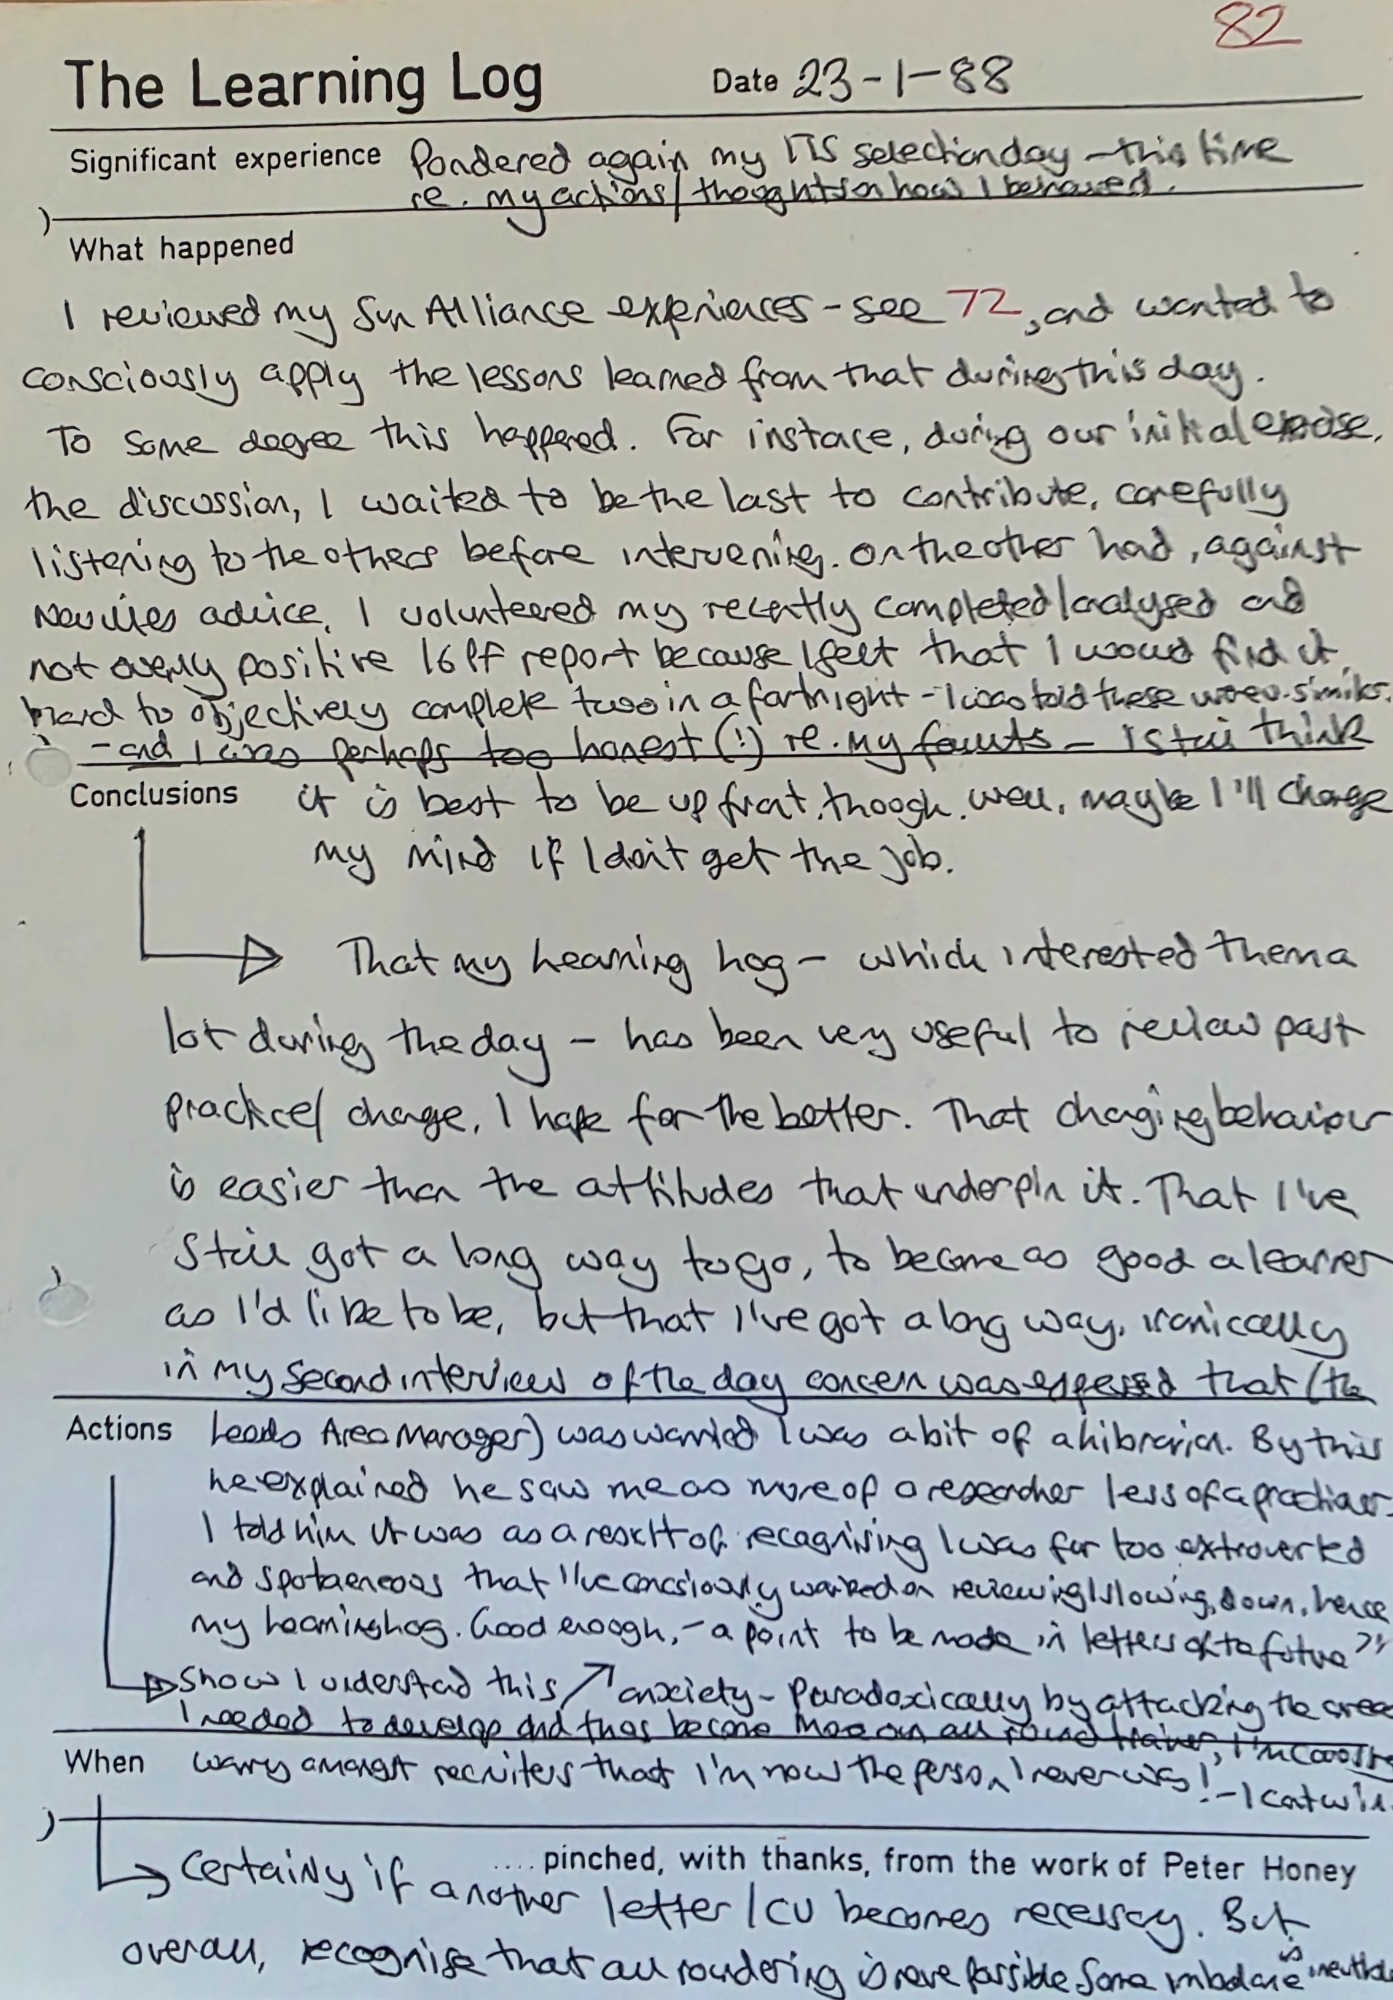 82
The Learning Log Date 23-1-88
Significant experience Pondered again my ITS selection day - this time
re. my actions/thoughts on how I behaved.
What happened
I reviewed my Sun Alliance experiences - see 72, and wanted to
consciously apply the lessons learned from that during this day.
To some degree this happened. For instace, during our initial
the discussion, I waited to be the last to contribute, carefully
listening to the others before intervening. On the other had, against
Nevilles advice, I volunteered my recently completed/analysed and
not overly positive 16PF report because I felt that I would find it
hard to objectively complete two in a fortnight - I was told these were v. similar.
- and I was perhaps too honest (!) re. my faults - I still think
Conclusions it is best to be up front, though. Well, maybe I'll change
my mind if I don't get the job.
That my Learning Log - which interested them a
lot during the day - has been very useful to review past
practice/ change, I hope for the better. That changing behaviour
is easier than the attitudes that underpin it. That I've
still got a long way to go, to become as good a learner
as I'd like to be, but that I've got a long way, ironically
in my second interview of the day concern was expressed that (the
Actions Leeds Area Manager) was worried I was a bit of a librarian. By this
he explained he saw me as more of a researcher less of a practioner.
I told him it was as a result of recognising I was far too extroverted
and spotaeneous that I've conciously worked on reviewing/slowing down, hence
my Learning Log. Good enough, - a point to be made in letters of the future
Show I understand this anxiety - Paradoxically by attacking the area
I needed to develop and thus become more an all round trainer, I'm
When worry amongst recruiters that I'm now the person I never was! - I cat win
.... pinched, with thanks, from the work of Peter Honey
Certainly if another letter/CV becomes necessay. But
overall, recognise that all roundering is possible some imbalance is